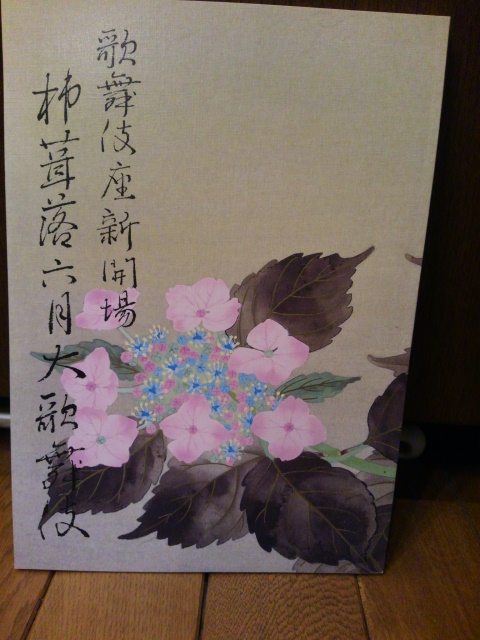 歌舞伎座新開場
杮葺落六月大歌舞伎